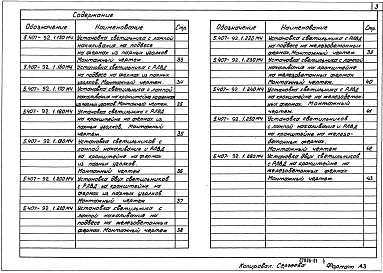 3
Содержание
Обозначение Наименование Стр.
5.407-92.1.150МЧ Установка светильника с лампой
накаливания на подвесе
на фермах из парных уголков
Монтажный чертеж 33
5.407-92.1.160МЧ Установка светильника с РЛВД
на подвесе на фермах из парных
уголков. Монтажный чертеж. 34
5.407-92.1.170МЧ Установка светильника с лампой
накаливания на кронштейне на фермах
из парных уголков. Монтажный чертеж. 35
5.407-92.1.180МЧ Установка светильника с РЛВД
на кронштейне на фермах из
парных уголков. Монтажный
чертеж. 35
5.407-92.1.190МЧ Установка светильников с
лампой накаливания и РЛВД
на кронштейне на фермах
из парных уголков
Монтажный чертеж 36
5.407-92.1.200МЧ Установка двух светильников
с РЛВД на кронштейне на
фермах из парных уголков
Монтажный чертеж 37
5.407-92.1.210МЧ Установка светильника с
лампой накаливания на
подвесе на железобетонных
фермах. Монтажный чертеж 38
Обозначение Наименование Стр.
5.407-92.1.220МЧ Установка светильника с РЛВД
на подвесе на железобетонных
фермах. Монтажный чертеж 39
5.407-92.1.230МЧ Установка светильника с лампой
накаливания на кронштейне
на железобетонных фермах
Монтажный чертеж 40
5.407-92.1.240МЧ Установка светильника с РЛВД
на кронштейне на железобетон-
ных фермах. Монтажный
чертеж 41
5.407-92.1.250МЧ Установка светильников
с лампой накаливания и РЛВД
на кронштейне на железо-
бетонных фермах.
Монтажный чертеж 42
5.407-92.1.260МЧ Установка двух светильников
с РЛВД на кронштейне на
железобетонных фермах
Монтажный чертеж 43
Копировал: Сергеева Формат А3